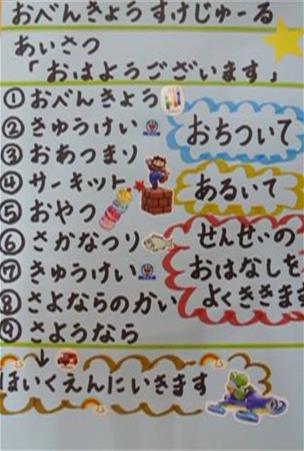 おべんきょう すけじゅーる
あいさつ
「おはようございます」
① おべんきょう
② きゅうけい
おちついて
③ おあつまり
④ サーキット
あるいて
⑤ おやつ
⑥ さかなつり
せんせいの
⑦ きゅうけい
おはなしを
⑧ さよならのかい
よくききます
⑨ さようなら
↓
ほいくえんにいきます